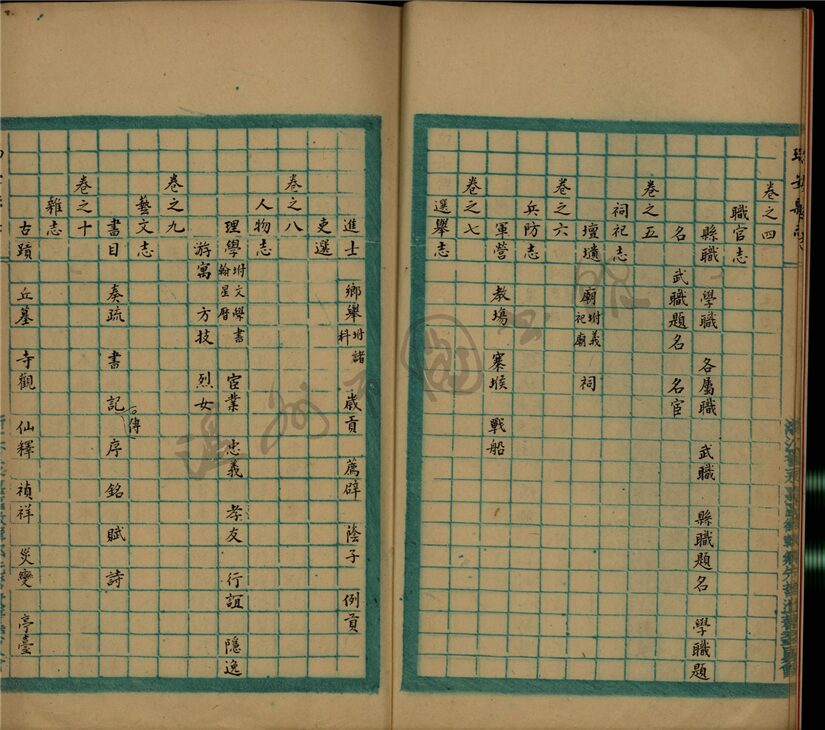 卷之四
職官志
縣職 學職 各屬職 武職 縣職題名 學職題
名 武職題名 名官
卷之五
祠祀志
壇壝 廟附義祀廟 祠
卷之六
兵防志
軍營 教場 寨堠 戰船
卷之七
選舉志
進士 鄉舉附諸科 歲貢 薦辟 蔭子 例貢
吏選
卷之八
人物志
理學附文學書翰星曆 宦業 忠義 孝友 行誼 隱逸
游寓 方技 烈女
卷之九
藝文志
書目 奏疏 書 記 傳 序 銘 賦 詩
卷之十
雜志
古蹟 丘墓 寺觀 仙釋 禎祥 災變 亭臺